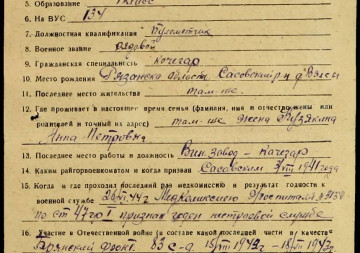 5. Образование
6. На ВУС 134
7. Должностная квалификация Пулеметчик
8. Военное звание рядовой
9. Гражданская специальность Кочегар
10. Место рождения Рязанской области Сасовский р-н д
11. Последнее место жительства там-же.
12. Где проживает в настоящее время семья (фамилия, имя и отчество жены или
родителей и точный их адрес) там-же жена Рузякина
Анна Петровна
13. Последнее место работы и должность Винзавод - кочегар
14. Каким райгорвоенкоматом и когда призван Сасовским 1941 года
15. Когда и где проходил последний раз медкомиссию и результат годности к
военной службе 44г Медкомиссию Госпиталя
по ст 47гр I признан годен нестроевой службе
16. Участие в Отечественной войне (в составе какой последней части и в качестве
Брянский фронт. 83 с-д 1942г - 1943г